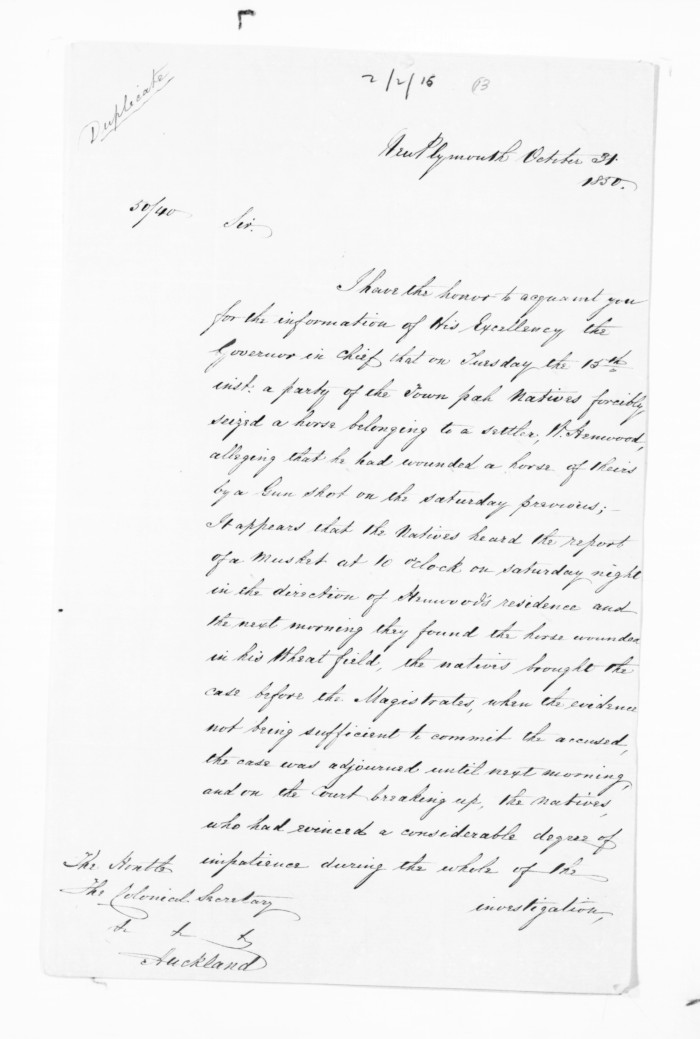 Duplicate
2/2/16 
New Plymouth October 31.
1850.
50/40
Sir.
I have the honor to acquaint you
for the information of His Excellency the
Governor in Chief that on Tuesday the 15th
inst: a party of the Town pah Natives forcibly
seized a horse belonging to a settler, W. Henwood,
alleging that he had wounded a horse of theirs
by a Gun shot on the saturday previous;-
It appears that the Natives heard the report
of a Musket at 10 o'clock on saturday night
in the direction of Henwood's residence and
the next morning they found the horse wounded
in his Wheat field, the natives brought the
case before the Magistrates, when the evidence
not being sufficient to commit the accused,
the case was adjourned until next morning,
and on the Court breaking up, the natives,
who had evinced a considerable degree of
impatience during the whole of the
investigation,
The Honble
The Colonial Secretary
&c &c &c
Auckland